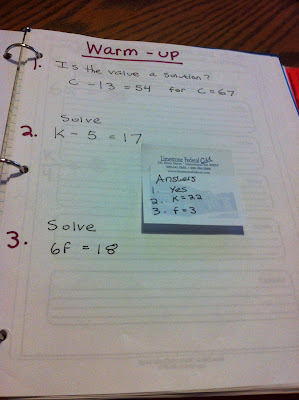 Warm-up
1. Is the value a solution?
C - 13 = 54 for C = 67
2. Solve
K - 5 = 17
Limestone Federal
Answers
1. Yes
2. K = 22
3. f = 3
3. Solve
6f = 18